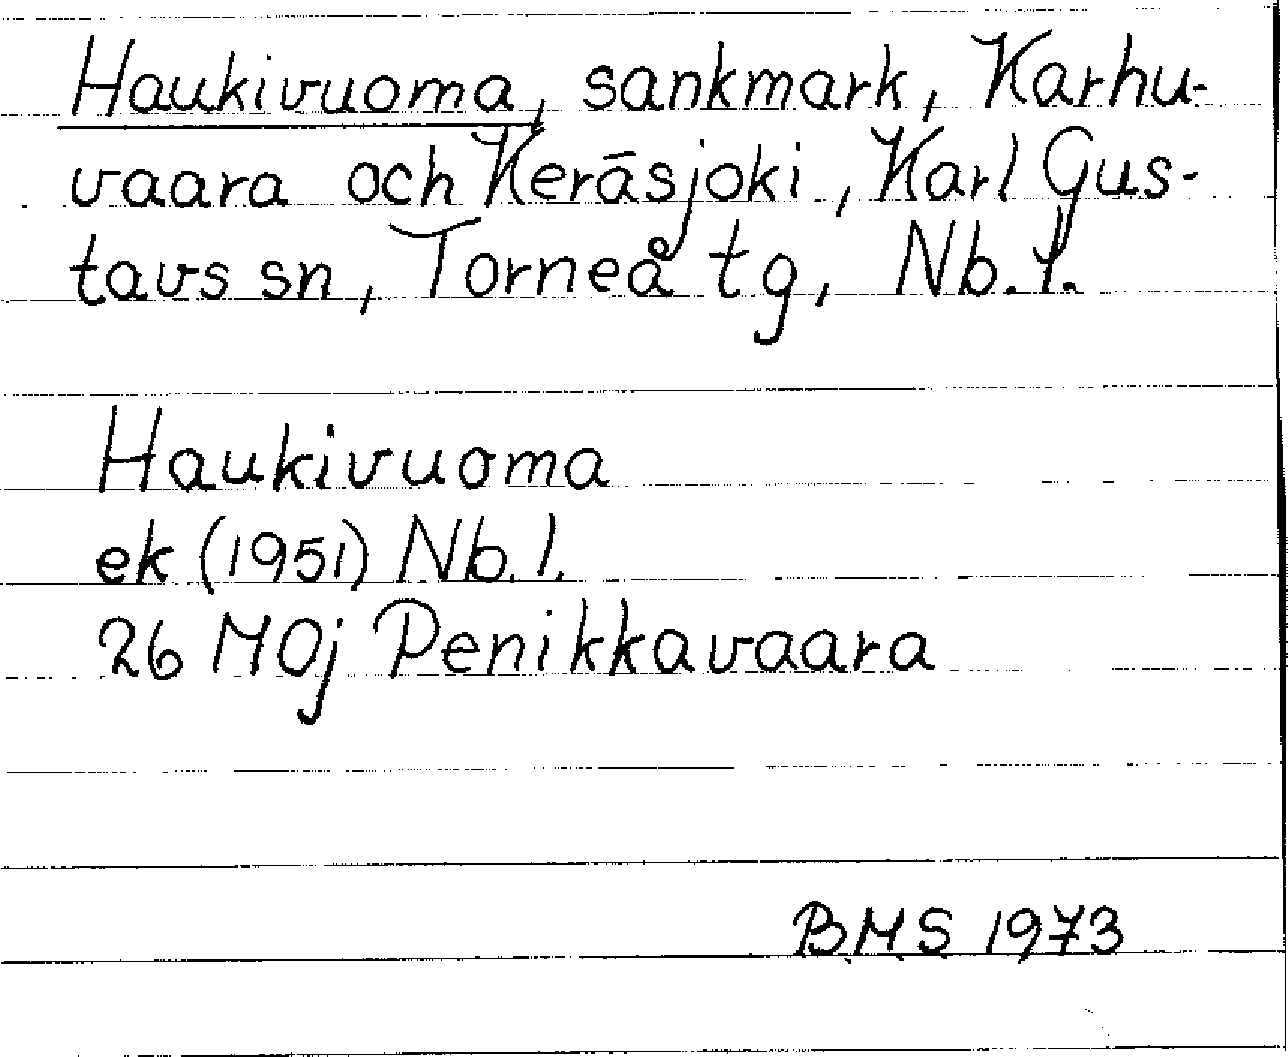 Haukivuoma, sankmark, Karhu-
vaara och Keräsjoki, Karl Gus-
tavs sn, Torneå tg, Nb. l.
Haukivuoma
ek (1951) Nb. l.
26 MOj Penikkavaara
BMS 1973